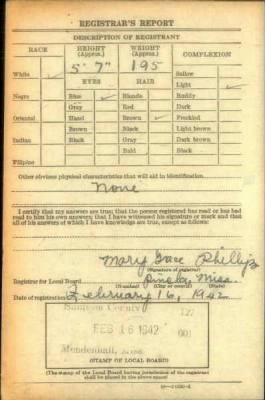 REGISTRAR'S REPORT
DESCRIPTION OF REGISTRANT
RACE HEIGHT (Approx.) WEIGHT (Approx.) COMPLEXION
White ✓ 5' 7" 195 Sallow
Light ✓
EYES HAIR
Negro Blue ✓ Blonde Ruddy
Gray Red Dark
Oriental Hazel Brown ✓ Freckled
Brown Black Light brown
Indian Black Gray Dark brown
Bald Black
Filipino
Other obvious physical characteristics that will aid in identification
None
I certify that my answers are true; that the person registered has read or has had
read to him his own answers; that I have witnessed his signature or mark and that
all of his answers of which I have knowledge are true, except as follows:
Mary Grace Phillips
(Signature of registrar)
Registrar for Local Board Pinola, Miss.
Date of registration February 16, 1942
Simpson County 127
FEB 16 1942 001
Mendenhall, Miss.
(STAMP OF LOCAL BOARD)
(The stamp of the Local Board having jurisdiction of the registrant
shall be placed in the above space)